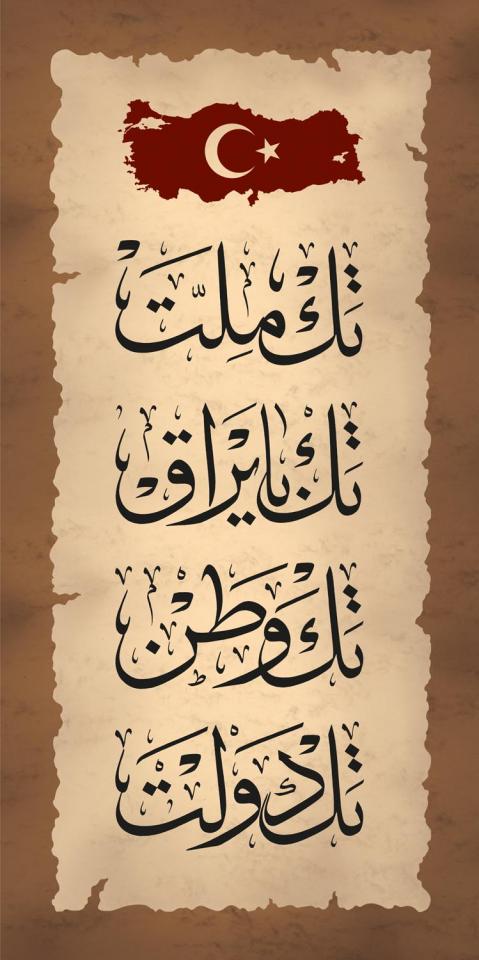 تك ملت
تك بايراق
تك وطن
تك دولت